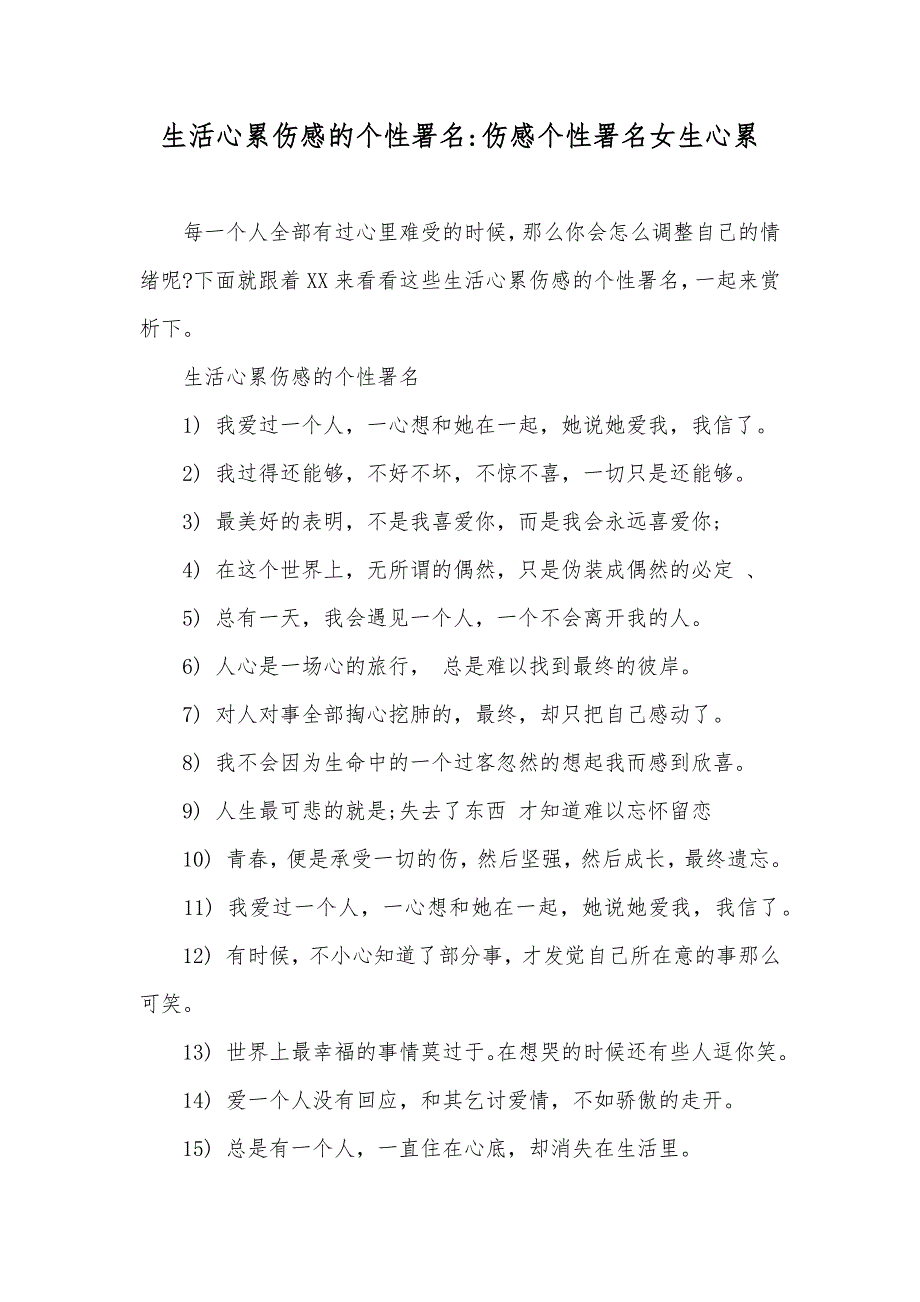 生活心累伤感的个性署名:伤感个性署名女生心累
每一个人全部有过心里难受的时候,那么你会怎么调整自己的情
绪呢?下面就跟着 XX 来看看这些生活心累伤感的个性署名,一起来赏
析下。
生活心累伤感的个性署名
1) 我爱过一个人，一心想和她在一起，她说她爱我，我信了。
2) 我过得还能够，不好不坏，不惊不喜，一切只是还能够。
3) 最美好的表明，不是我喜爱你，而是我会永远喜爱你;
4) 在这个世界上，无所谓的偶然，只是伪装成偶然的必定 、
5) 总有一天，我会遇见一个人，一个不会离开我的人。
6) 人心是一场心的旅行， 总是难以找到最终的彼岸。
7) 对人对事全部掏心挖肺的，最终，却只把自己感动了。
8) 我不会因为生命中的一个过客忽然的想起我而感到欣喜。
9) 人生最可悲的就是;失去了东西 才知道难以忘怀留恋
10) 青春,便是承受一切的伤,然后坚强,然后成长,最终遗忘。
11) 我爱过一个人，一心想和她在一起，她说她爱我，我信了。
12) 有时候,不小心知道了部分事,才发觉自己所在意的事那么
可笑。
13) 世界上最幸福的事情莫过于。在想哭的时候还有些人逗你笑。
14) 爱一个人没有回应，和其乞讨爱情，不如骄傲的走开。
15) 总是有一个人，一直住在心底，却消失在生活里。